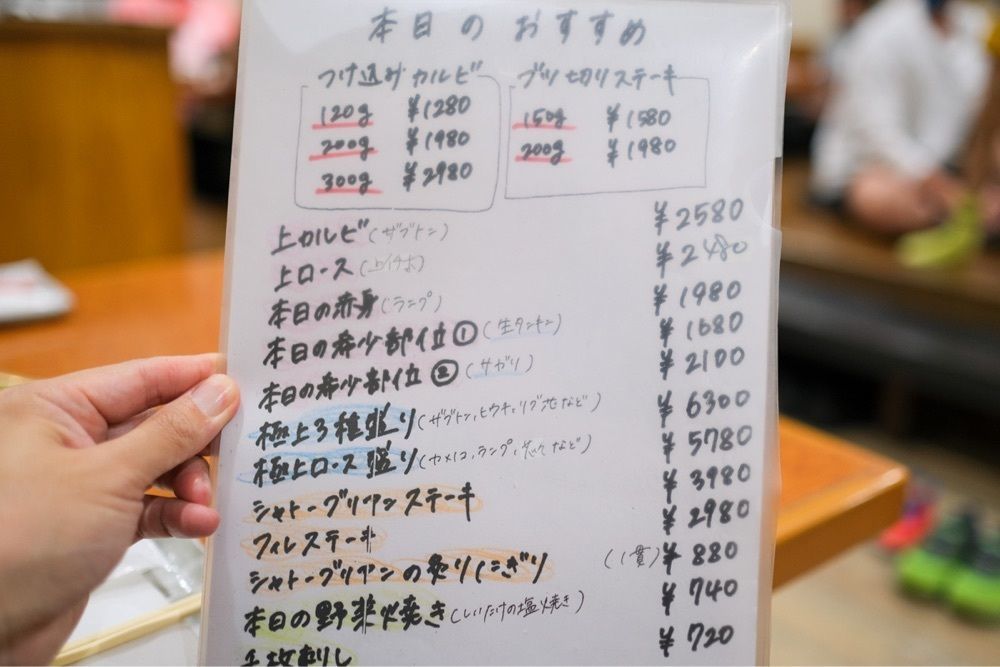 本日のおすすめ
つけ込みカルビ
120g ¥1280
200g ¥1980
300g ¥2980
ブツ切りステーキ
150g ¥1580
200g ¥1980
上カルビ(ザブトン) ¥2580
上ロース ¥2480
本日の赤身(ランプ) ¥1980
本日の希少部位① ¥1680
本日の希少部位②(サガリ) ¥2100
極上3種盛り(ザブトン,ヒウチ,リブ芯など) ¥6300
極上ロース盛り(カメノコ,ランプ, など) ¥5780
シャトーブリアンステーキ ¥3980
フィレステーキ ¥2980
シャトーブリアンの炙りにぎり (1貫)¥880
本日の野菜焼き(しいたけの塩焼き) ¥740
千枚刺し ¥720